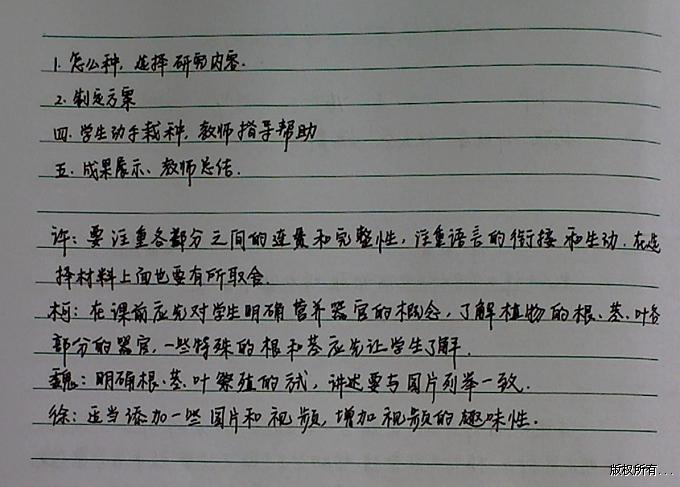 1. 怎么种, 选择研究内容.
2. 制定方案
四. 学生动手栽种, 教师指导帮助
五. 成果展示、教师总结.
许: 要注重各部分之间的连贯和完整性, 注重语言的衔接和生动. 在选
择材料上面也要有所取舍.
柯: 在课前应先对学生明确营养器官的概念, 了解植物的根、茎、叶各
部分的器官, 一些特殊的根和茎应先让学生了解.
魏: 明确根、茎、叶繁殖的方式, 讲述要与图片列举一致.
徐: 适当添加一些图片和视频, 增加视频的趣味性.
版权所有...